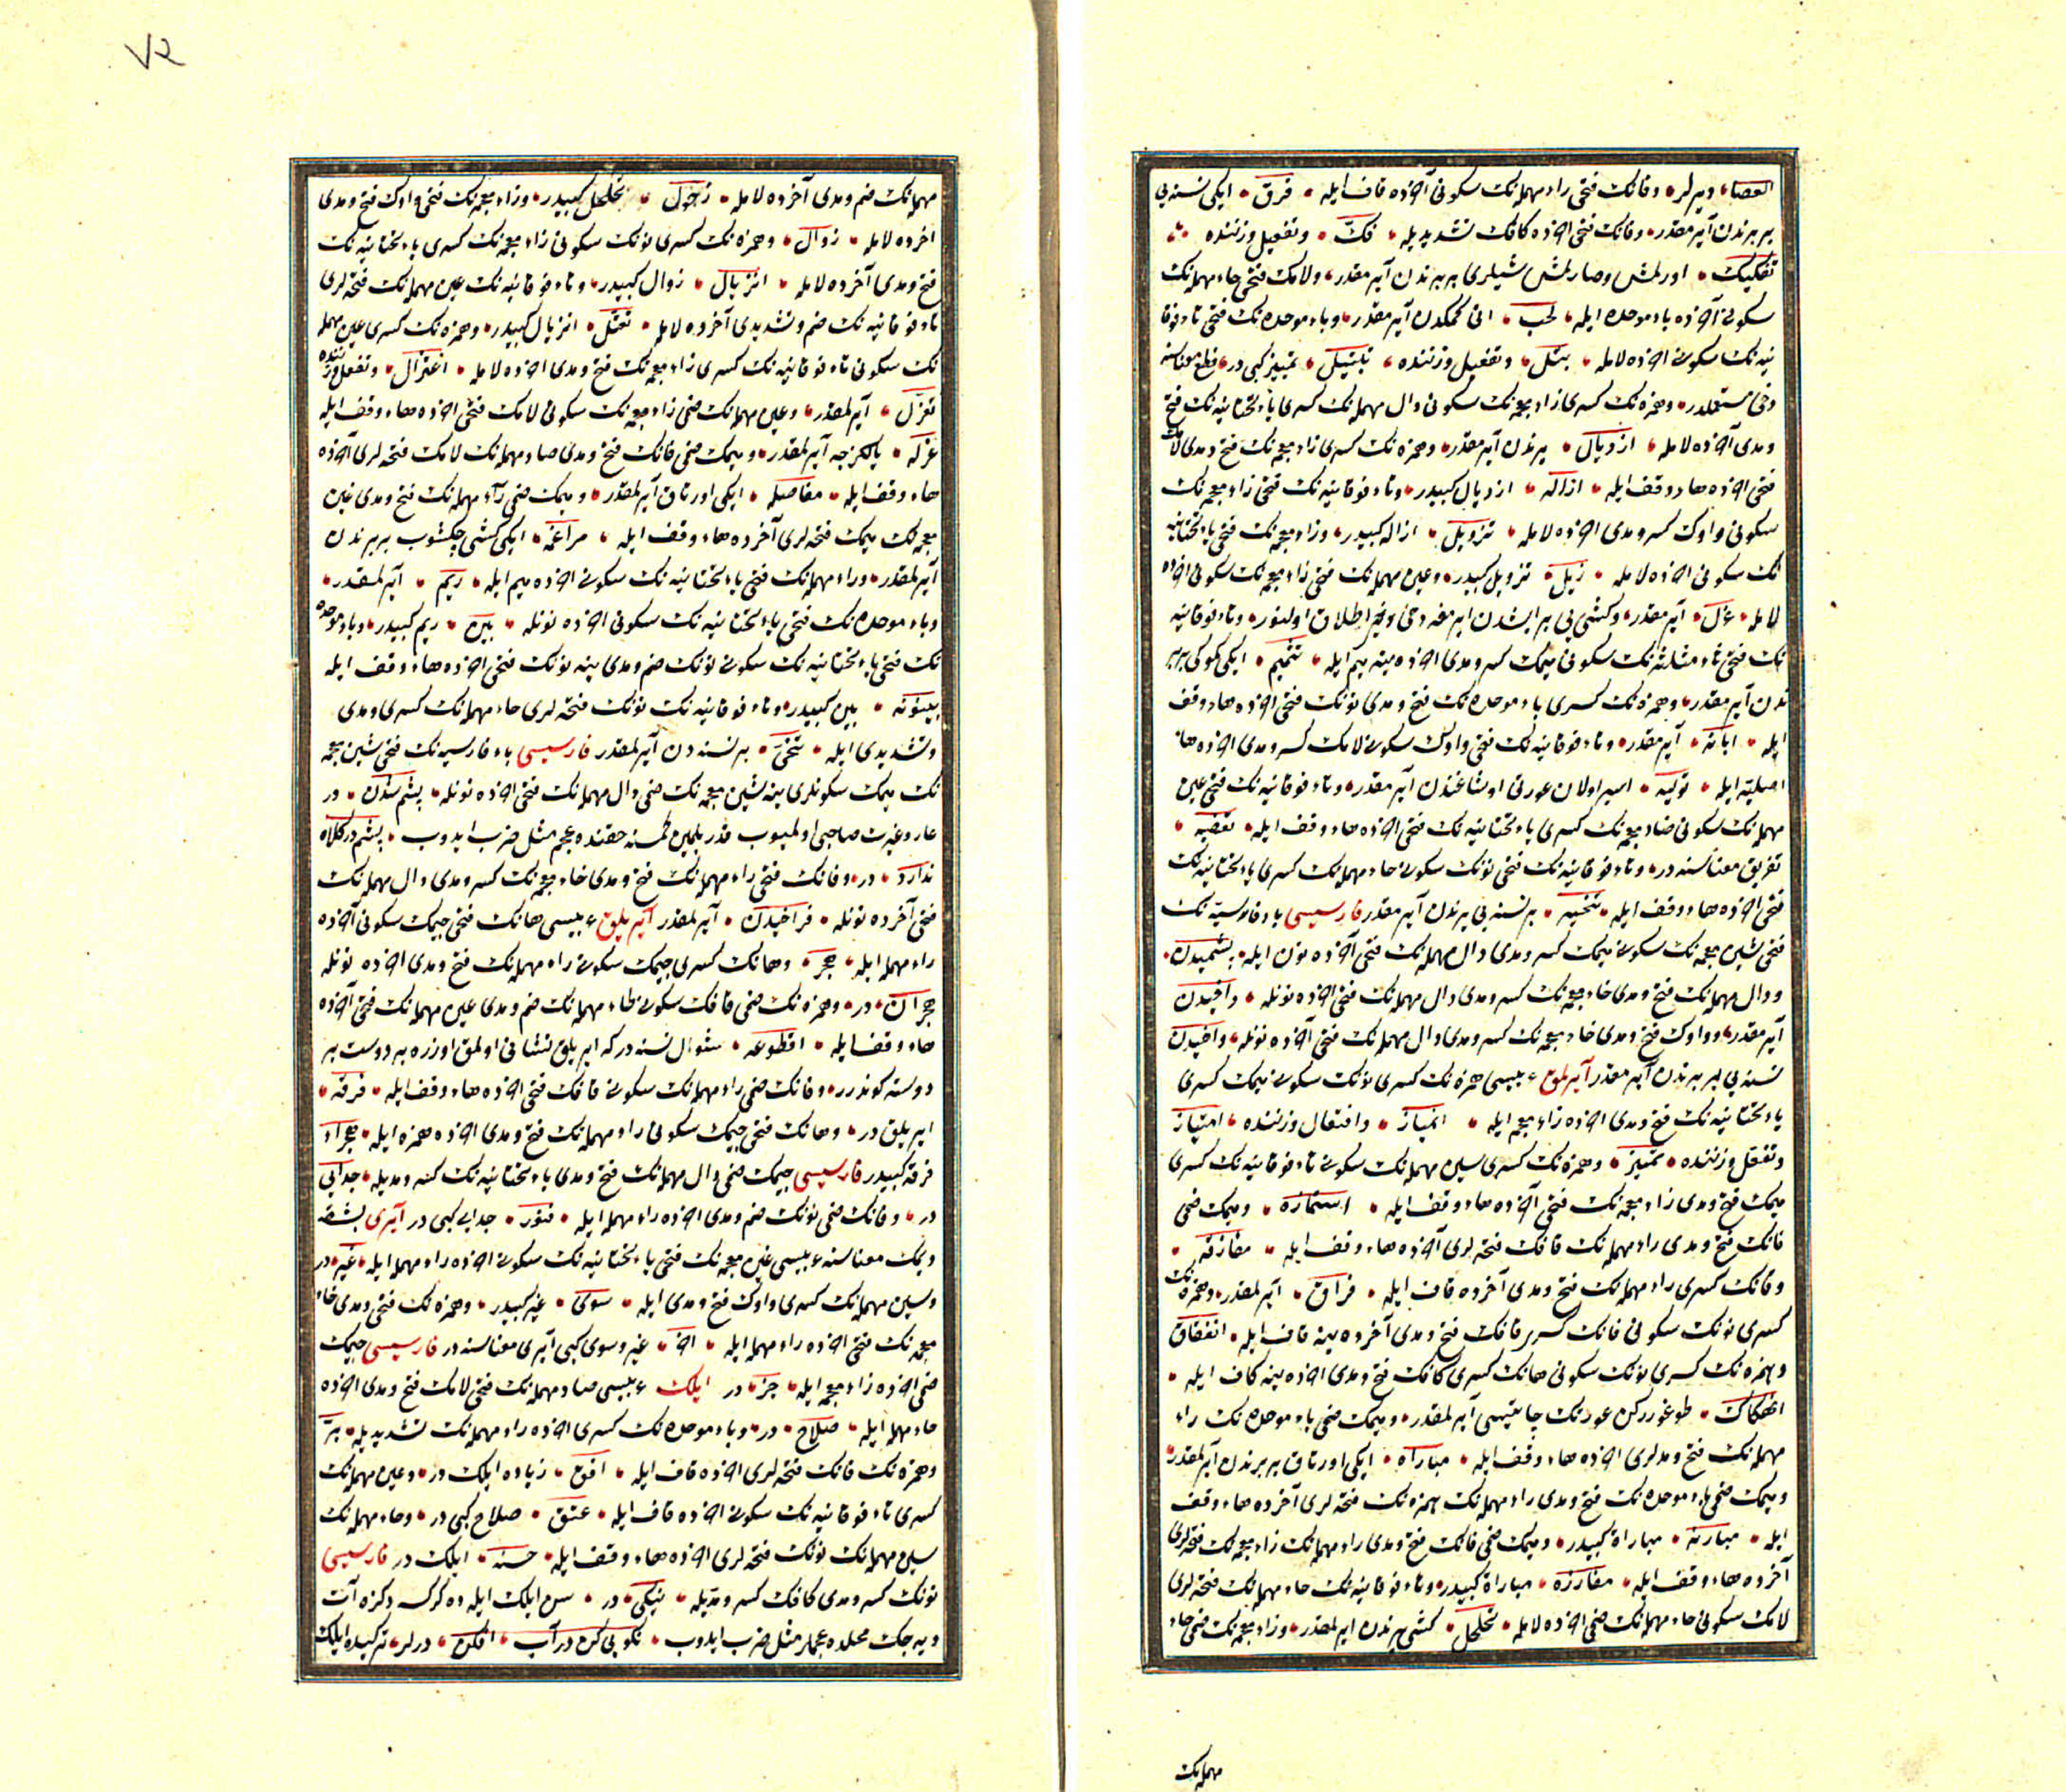 العصا دیرلر وفانك فتحی راء مهمله‌نك سكونی آخرده قاف ایله فرق ایكی نسنه‌یی
بربرندن آیرمقدر وفانك فتحی آخرده كافك تشدیدیله فك وتفعیل وزننده
تفكیك اورلمش وصارلمش شیلری بربرندن آیرمقدر ولامك فتحی حاء مهمله‌نك
سكونی آخرده باء موحده ایله لحب اتی كمكدن آیرمقدر وباء موحده‌نك فتحی تاء فوقا
نیه‌نك سكونی آخرده لامله بتل وتفعیل وزننده تبتیل تمییز كبی در قطع معناسنه
دخی مستعملدر وهمزه‌نك كسری زاء معجمه‌نك سكونی دال مهمله‌نك كسری یاء تحتانیه‌نك فتح
ومدی آخرده لامله ازدیال یرندن آیرمقدر وهمزه‌نك كسری زاء معجمه‌نك فتح ومدی لامك
فتحی آخرده هاء وقف ایله ازاله ازدیال كبیدر وتاء فوقانیه‌نك فتحی زاء معجمه‌نك
سكونی واوك كسر ومدی آخرده لامله تزویل ازاله كبیدر وزاء معجمه‌نك فتحی یاء تحتانیه
نك سكونی آخرده لامله زیل تزویل كبیدر وعین مهمله‌نك فتحی زاء معجمه‌نك سكونی آخرده
لامله عزل آیرمقدر وكشی‌یی بر ایشدن ایرمغه دخی وغیر اطلاق اولنور وتاء فوقانیه
نك فتحی ثاء مثلثه‌نك سكونی میمك كسر ومدی آخرده ینه میم ایله تثمیم ایكی كوكی بربر
ندن آیرمقدر وهمزه‌نك كسری باء موحده‌نك فتح ومدی نونك فتحی آخرده هاء وقف
ایله ابانه آیرمقدر وتاء فوقانیه‌نك فتحی واوك سكونی لامك كسر ومدی آخرده هاء
اصلیه ایله تولیه اسیر اولان عورتی اوشاغندن آیرمقدر وتاء فوقانیه‌نك فتحی عین
مهمله‌نك سكونی ضاد معجمه‌نك كسری یاء تحتانیه‌نك فتحی آخرده هاء وقف ایله تعضیه
تفریق معناسنه در وتاء فوقانیه‌نك فتحی نونك سكونی حاء مهمله‌نك كسری یاء تحتانیه‌نك
فتحی آخرده هاء وقف ایله تنحیه بر نسنه‌یی یرندن آیرمقدر فارسیسی باء فارسیه‌نك
فتحی شین معجمه‌نك سكونی میمك كسر ومدی دال مهمله‌نك فتحی آخرده نون ایله پشمیدن
ودال مهمله‌نك فتح ومدی خاء معجمه‌نك كسر ومدی دال مهمله‌نك فتحی آخرده نونله داخیدن
آیرمقدر وواوك فتح ومدی خاء معجمه‌نك كسر ومدی دال مهمله‌نك فتحی آخرده نونله واخیدن
نسنه‌یی بربرندن آیرمقدر آیرلمق عربیسی همزه‌نك كسری نونك سكونی میمك كسری
یاء تحتانیه‌نك فتح ومدی آخرده زاء معجمه ایله انمیاز وافتعال وزننده امتیاز
وتفعل وزننده تمیز وهمزه‌نك كسری سین مهمله‌نك سكونی تاء فوقانیه‌نك كسری
میمك فتح ومدی زاء معجمه‌نك فتحی آخرده هاء وقف ایله استمازه ومیمك ضمی
فانك فتح ومدی راء مهمله‌نك قافك فتحه‌لری آخرده هاء وقف ایله مفارقه
وفانك كسری راء مهمله‌نك فتح ومدی آخرده قاف ایله فراق آیرلمقدر وهمزه‌نك
كسری نونك سكونی فانك كسری قافك فتح ومدی آخرده ینه قاف ایله انفقاق
وهمزه‌نك كسری نونك سكونی هانك كسری كافك فتح ومدی آخرده ینه كاف ایله
انهكاك طوغوررکن عورتك چاتیسی آیرلمقدر ومیمك ضمی باء موحده‌نك راء
مهمله‌نك فتح ومدلری آخرده هاء وقف ایله مباراه ایكی اورتاق بربرندن آیرلمقدر
ومیمك ضمی باء موحده‌نك فتح ومدی راء مهمله‌نك همزه‌نك فتحه‌لری آخرده هاء وقف
ایله مبارئه مباراة كبیدر ومیمك ضمی فانك فتح ومدی راء مهمله‌نك زاء معجمه‌نك فتحه‌لری
آخرده هاء وقف ایله مفارزه مباراة كبیدر وتاء فوقانیه‌نك حاء مهمله‌نك فتحه‌لری
لامك سكونی حاء مهمله‌نك ضمی آخرده لامله تحلحل كشی یرندن ایرلمقدر وزاء معجمه‌نك ضمی حاء
مهمله‌نك
٧٢
مهمله‌نك ضم ومدی آخرده لامله زحول تحلحل كبیدر وزاء معجمه‌نك فتحی واوك فتح ومدی
آخرده لامله زوال وهمزه‌نك كسری نونك سكونی زاء معجمه‌نك كسری یاء تحتانیه‌نك
فتح ومدی آخرده لامله انزیال زوال كبیدر وتاء فوقانیه‌نك عین مهمله‌نك فتحه‌لری
تاء فوقانیه‌نك ضم وتشدیدی آخرده لامله تعتل انزیال كبیدر وهمزه‌نك كسری عین مهمله
نك سكونی تاء فوقانیه‌نك كسری زاء معجمه‌نك فتح ومدی آخرده لامله اعتزال وتفعل وزننده
تعزل آیرلمقدر وعین مهمله‌نك ضمی زاء معجمه‌نك سكونی لامك فتحی آخرده هاء وقف ایله
عزله یالكزجه آیرلمقدر ومیمك ضمی فانك فتح ومدی صاد مهمله‌نك لامك فتحه‌لری آخرده
هاء وقف ایله مفاصله ایكی اورتاق آیرلمقدر ومیمك ضمی راء مهمله‌نك فتح ومدی غین
معجمه‌نك میمك فتحه‌لری آخرده هاء وقف ایله مراغمه ایكی كشی چكشوب بربرندن
آیرلمقدر وراء مهمله‌نك فتحی یاء تحتانیه‌نك سكونی آخرده میم ایله ریم آیرلمقدر
وباء موحده‌نك فتحی یاء تحتانیه‌نك سكونی آخرده نونله بین ریم كبیدر وباء موحده
نك فتحی یاء تحتانیه‌نك سكونی نونك ضم ومدی ینه نونك فتحی آخرده هاء وقف ایله
بینونه بین كبیدر وتاء فوقانیه‌نك نونك فتحه‌لری حاء مهمله‌نك كسری ومدی
وتشدیدی ایله تنحی بر نسنه‌دن آیرلمقدر فارسیسی باء فارسیه‌نك فتحی شین معجمه
نك میمك سكونلری ینه شین معجمه‌نك ضمی دال مهمله‌نك فتحی آخرده نونله پشم شدن در
عار وغیرت صاحبی اولمیوب قدر بلمین كمسنه حقنده عجم مثل ضرب ایدوب پشم در كلاه
ندارد در وفانك فتحی راء مهمله‌نك فتح ومدی خاء معجمه‌نك كسر ومدی دال مهمله‌نك
فتحی آخرده نونله فراخیدن آیرلمقدر آیریلق عربیسی هانك فتحی جیمك سكونی آخرده
راء مهمله ایله هجر وهانك كسری جیمك سكونی راء مهمله‌نك فتح ومدی آخرده نونله
هجران در وهمزه‌نك ضمی قافك سكونی طاء مهمله‌نك ضم ومدی عین مهمله‌نك فتحی آخرده
هاء وقف ایله اقطوعه شول نسنه در كه ایریلق نشانی اولمق اوزره بر دوست بر
دوسته كوندرر وفانك ضمی راء مهمله‌نك سكونی قافك فتحی آخرده هاء وقف ایله فرقه
ایریلق در وهانك فتحی جیمك سكونی راء مهمله‌نك فتح ومدی آخرده همزه ایله هجراء
فرقه كبیدر فارسیسی جیمك ضمی دال مهمله‌نك فتح ومدی یاء تحتانیه‌نك كسر ومدیله جدایی
در وفانك ضمی نونك ضم ومدی آخرده راء مهمله ایله فنور جدایی كبی در آیری بشقه
دیمك معناسنه عربیسی غین معجمه‌نك فتحی یاء تحتانیه‌نك سكونی آخرده راء مهمله ایله غیر در
وسین مهمله‌نك كسری واوك فتح ومدی ایله سوی غیر كبیدر وهمزه‌نك فتحی ومدی خاء
معجمه‌نك فتحی آخرده راء مهمله ایله آخر غیر وسوی كبی آیری معناسنه در فارسیسی جیمك
ضمی آخرده زاء معجمه ایله جز در ایلك عربیسی صاد مهمله‌نك فتحی لامك فتح ومدی آخرده
حاء مهمله ایله صلاح در وباء موحده‌نك كسری آخرده راء مهمله‌نك تشدیدیله بر
وهمزه‌نك فانك فتحه‌لری آخرده قاف ایله افق زیاده ایلك در وعین مهمله‌نك
كسری تاء فوقانیه‌نك سكونی آخرده قاف ایله عتق صلاح كبی در وحاء مهمله‌نك
سین مهمله‌نك نونك فتحه‌لری آخرده هاء وقف ایله حسنه ایلك در فارسیسی
نونك كسر ومدی كافك كسر ومدیله نیكی در سن ایلك ایله ده كرك سه دكزه آت
دیه‌جك محلده عجملر مثل ضرب ایدوب نكویی كن در آب افكن درلر تركیده ایلك